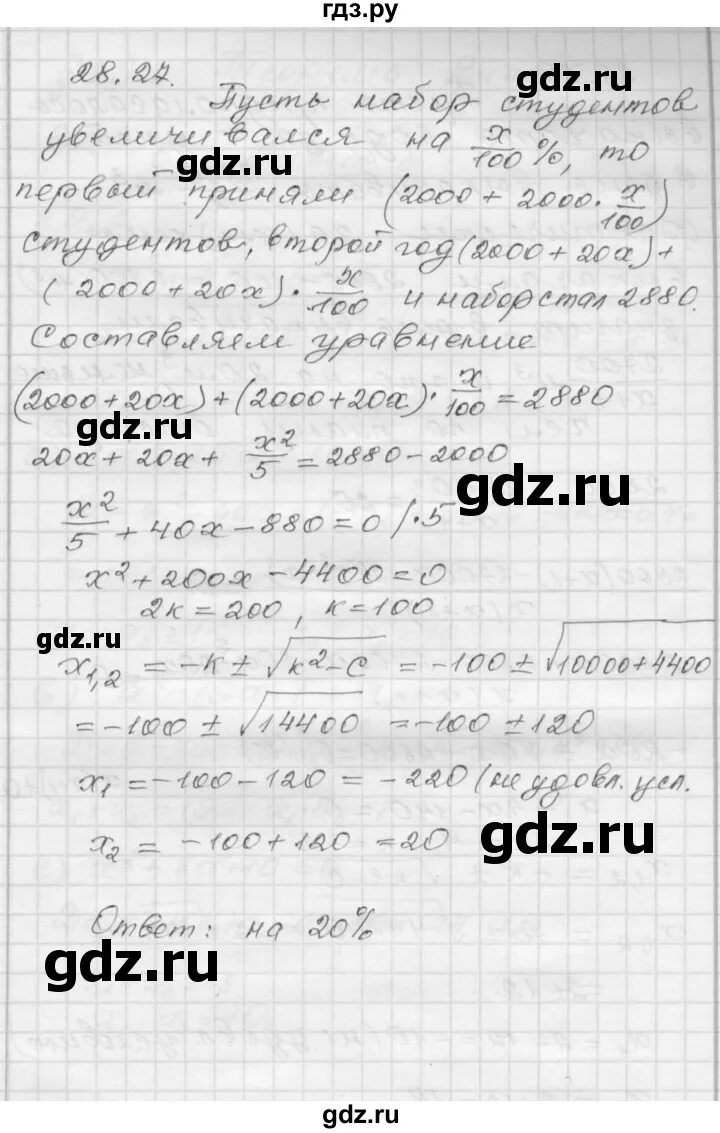 гдз.ру
28.27.
Пусть набор студентов
увеличивался на x/100 %, то
gdz.ru
первый приняли (2000 + 2000 · x/100)
студентов, второй год (2000 + 20x) +
(2000 + 20x) · x/100 и набор стал 2880.
Составляем уравнение
(2000 + 20x) + (2000 + 20x) · x/100 = 2880
gdz.ru
20x + 20x + x²/5 = 2880 - 2000
gdz.ru
x²/5 + 40x - 880 = 0 /·5
x² + 200x - 4400 = 0
2к = 200, к = 100
gdz.ru
x₁,₂ = -к ± √(к² - с) = -100 ± √(10000 + 4400)
= -100 ± √14400 = -100 ± 120
x₁ = -100 - 120 = -220 (не удовл. усл.
gdz.ru
x₂ = -100 + 120 = 20
Ответ: на 20%
gdz.ru
gdz.ru